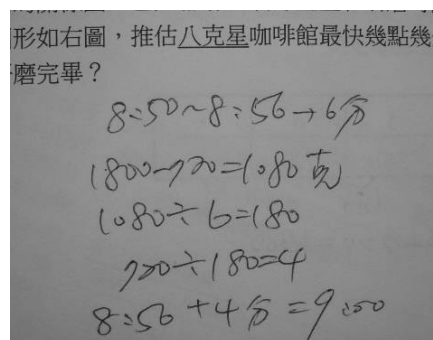 形如右圖，推估八克星咖啡館最快幾點幾
磨完畢？
8:50~8:56→6分
1800-720=1080克
1080÷6=180
720÷180=4
8:56+4分=9:00